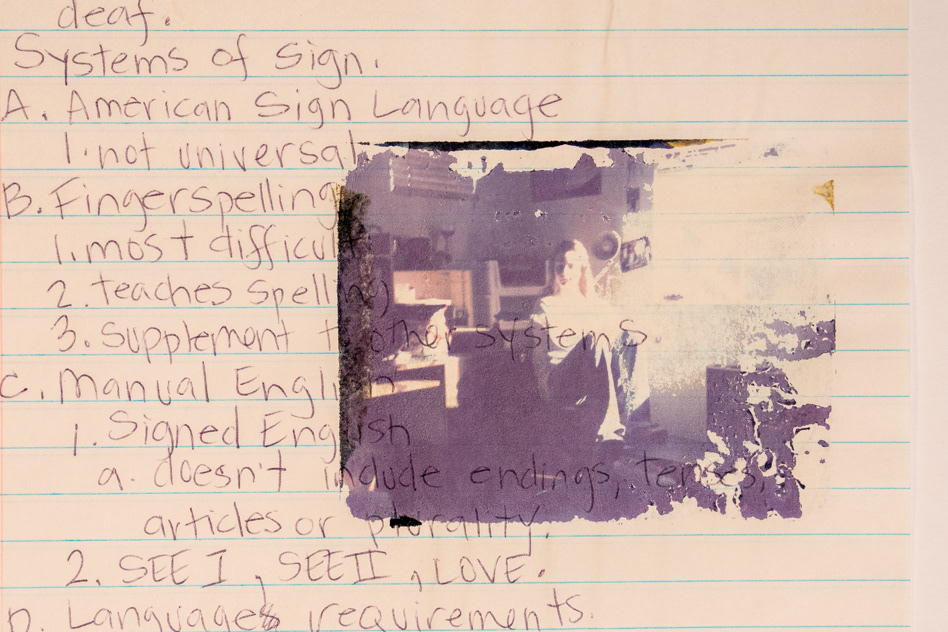 deaf.
Systems of Sign.
A. American Sign Language
1. not universal
B. Fingerspelling
1. most difficult
2. teaches spelling
3. Supplement to other systems.
C. Manual English
1. Signed English
a. doesn't include endings, tenses,
articles or plurality.
2. SEE I, SEE II, LOVE.
D. Languages requirements.